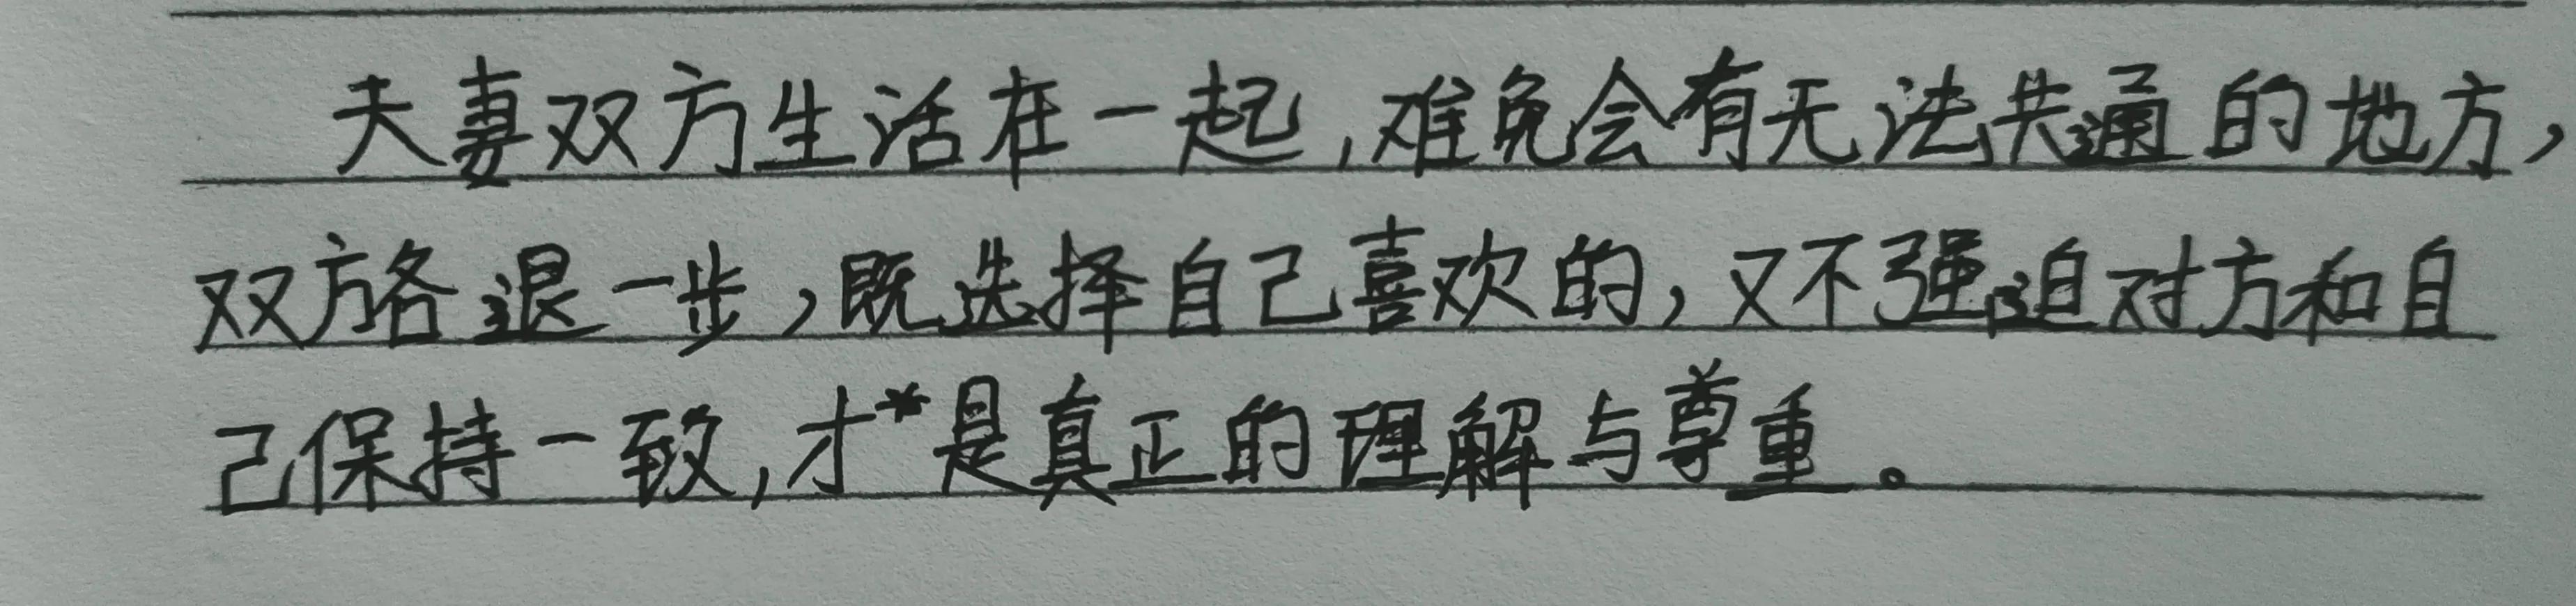 夫妻双方生活在一起,难免会有无法共通的地方,
双方各退一步,既选择自己喜欢的,又不强迫对方和自
己保持一致,才*是真正的理解与尊重。